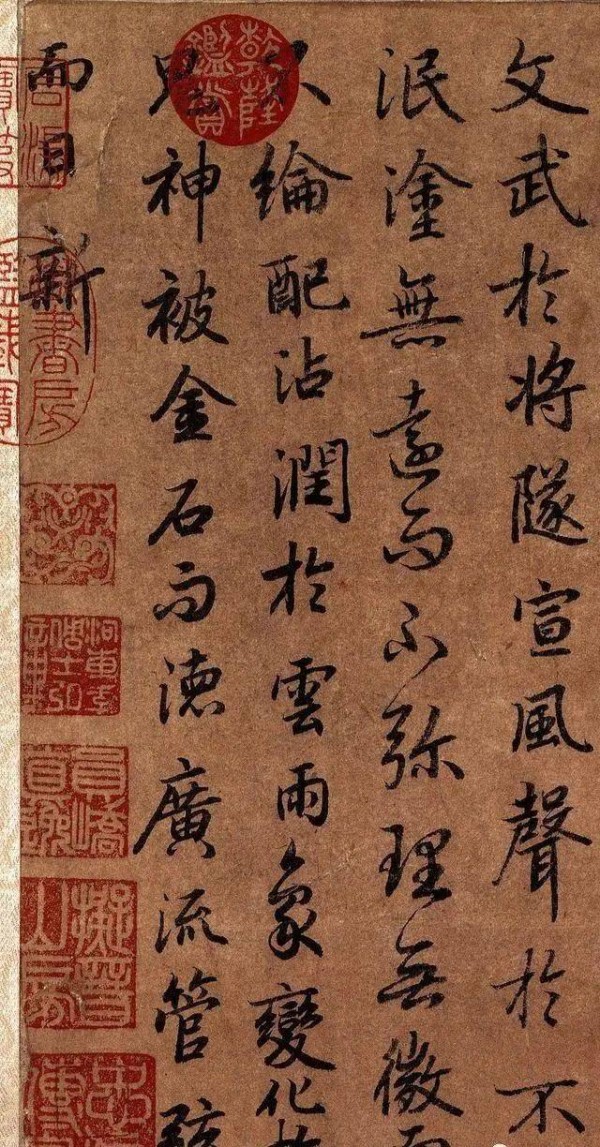 文武於將隊宣風聲於不
泯塗無遠而不弥理無微而
不綸配沾潤於雲雨象變化
鬼神被金石而德廣流管
而日新
乾隆鑑賞
書房